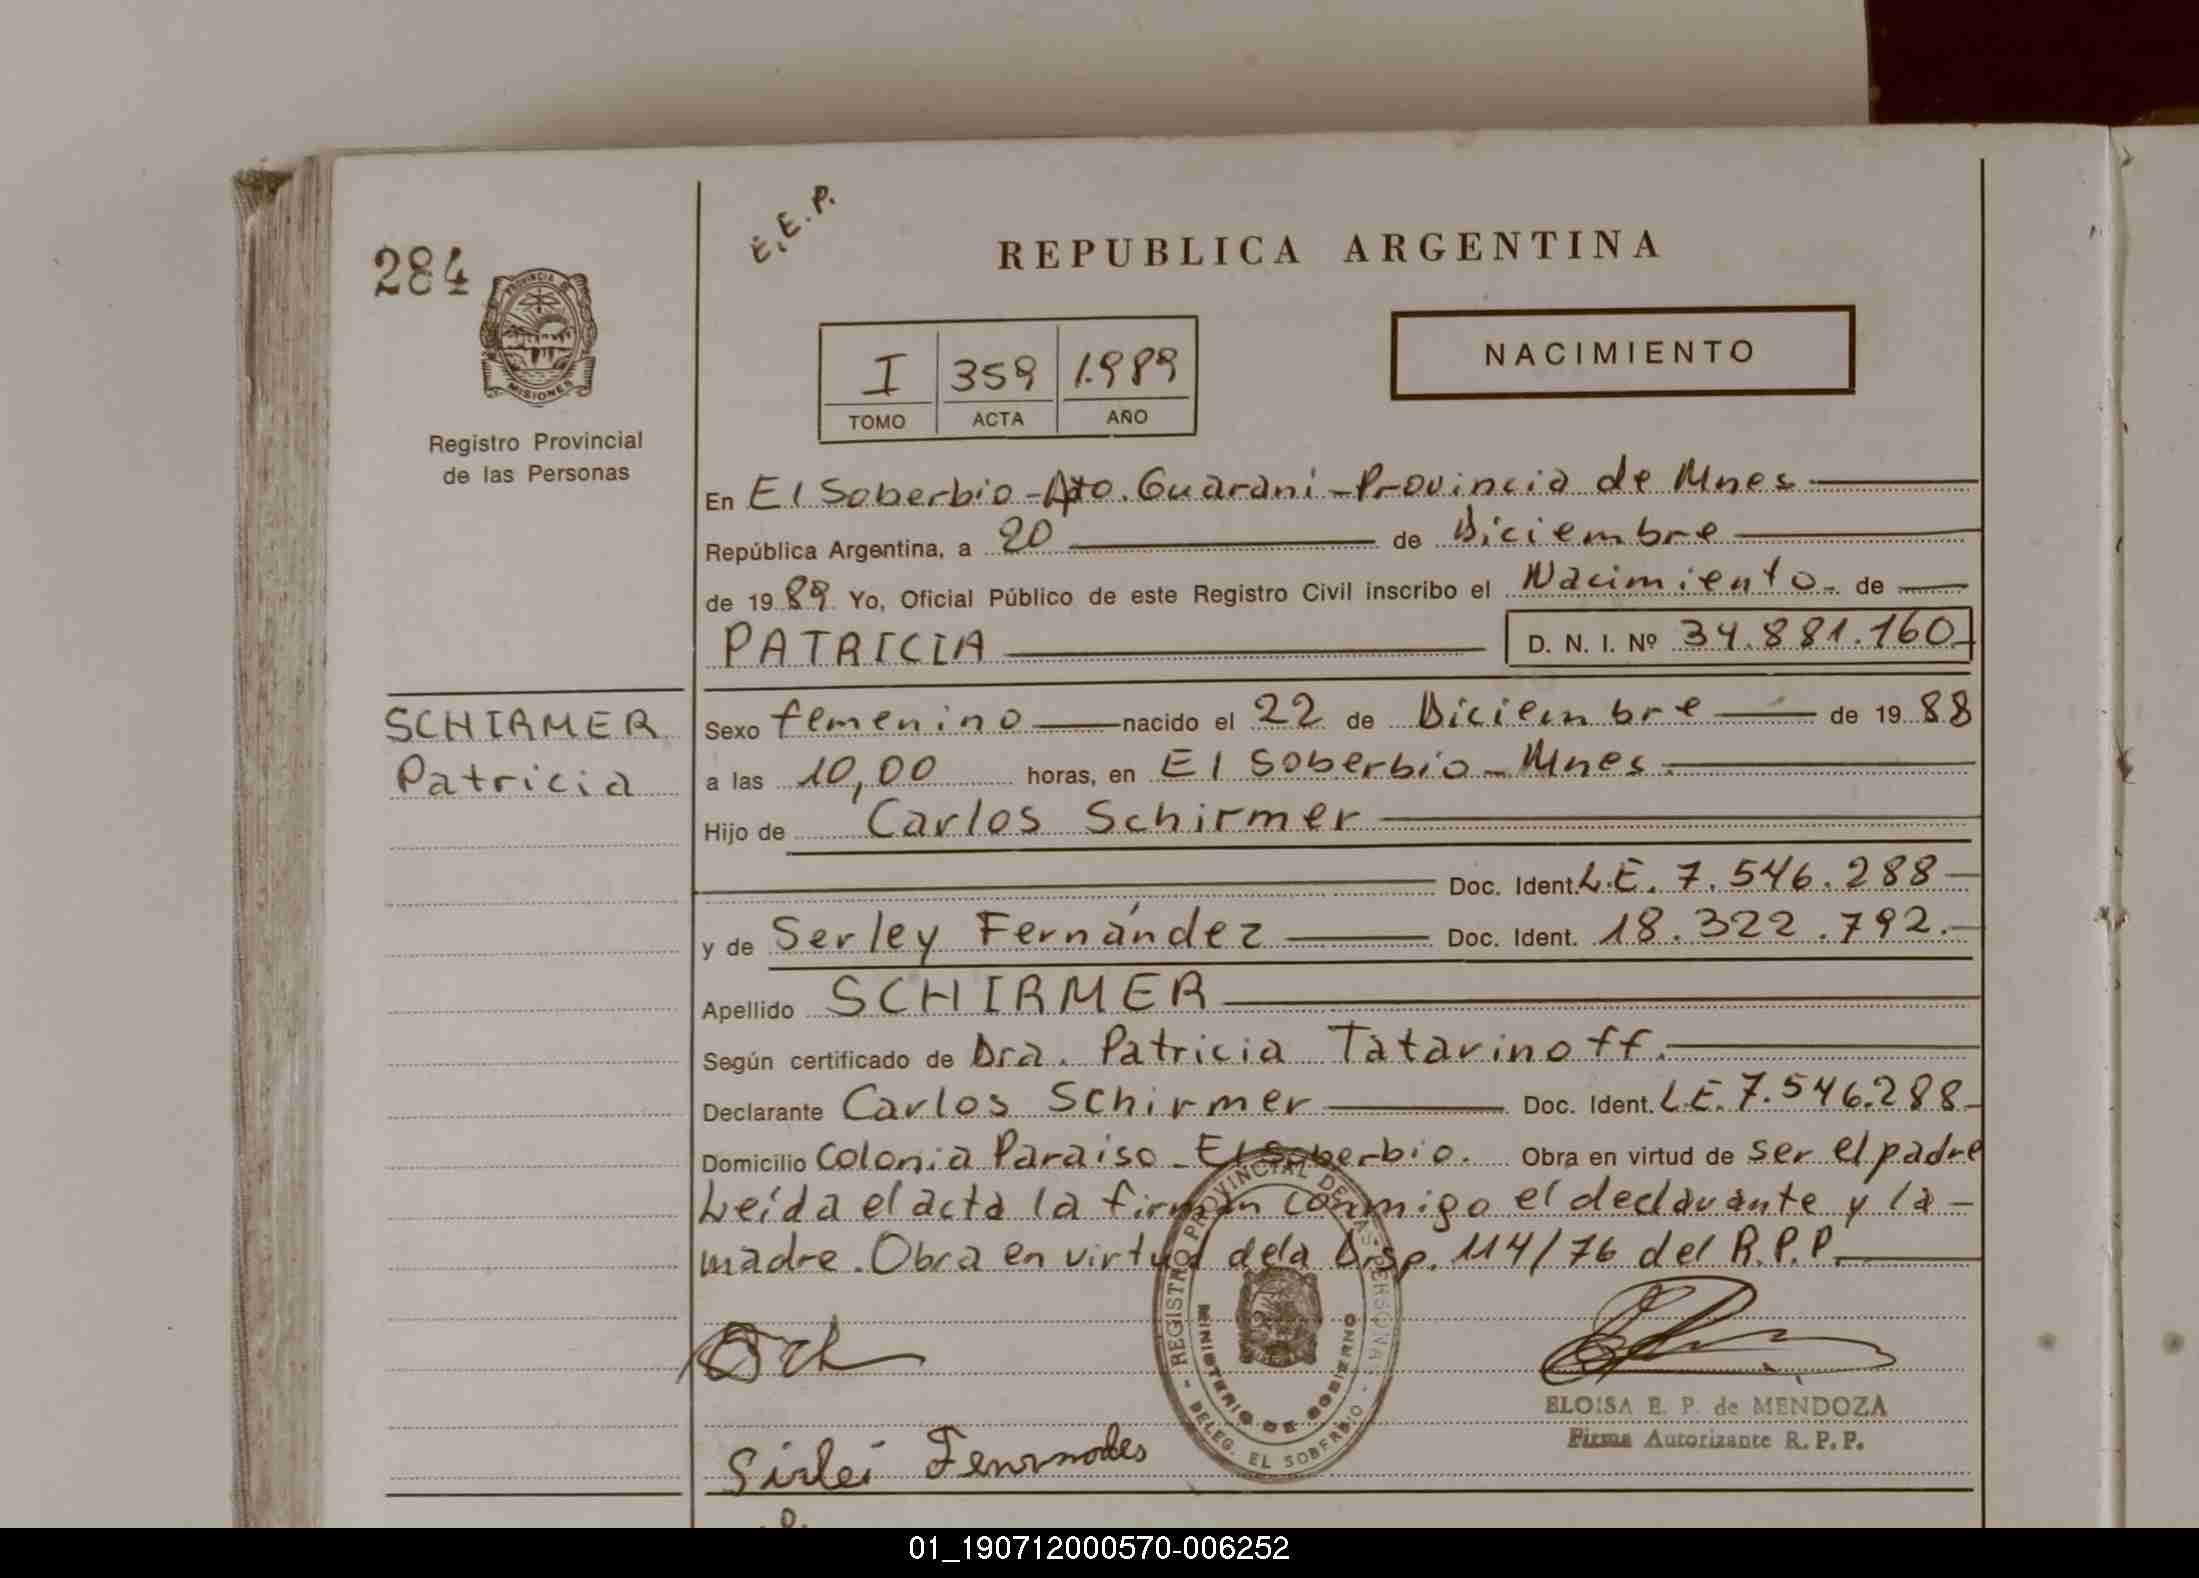 E.E.P.
REPUBLICA ARGENTINA
284
PROVINCIA DE
MISIONES
NACIMIENTO
I 359 1.989
TOMO ACTA AÑO
Registro Provincial
de las Personas
En El Soberbio - Dpto. Guaraní - Provincia de Mnes
República Argentina, a 20 de Diciembre
de 1989 Yo, Oficial Público de este Registro Civil inscribo el Nacimiento - de
PATRICIA D. N. I. Nº 34.881.160
SCHIRMER
Patricia
Sexo femenino nacido el 22 de Diciembre de 1988
a las 10,00 horas, en El Soberbio - Mnes.
Hijo de Carlos Schirmer
Doc. Ident. L.E. 7.546.288
y de Serley Fernández Doc. Ident. 18.322.792.
Apellido SCHIRMER
Según certificado de Dra. Patricia Tatarinoff.
Declarante Carlos Schirmer Doc. Ident. L.E. 7.546.288
Domicilio Colonia Paraiso - El Soberbio. Obra en virtud de ser el padre
Leída el acta la firman conmigo el declarante y la -
madre. Obra en virtud de la Disp. 114/76 del R.P.P.
REGISTRO PROVINCIAL DE LAS PERSONAS
MINISTERIO DE GOBIERNO
- DELEG. EL SOBERBIO -
ELOISA E. P. de MENDOZA
Firma Autorizante R. P. P.
Sirlei Fernandes
01_190712000570-006252